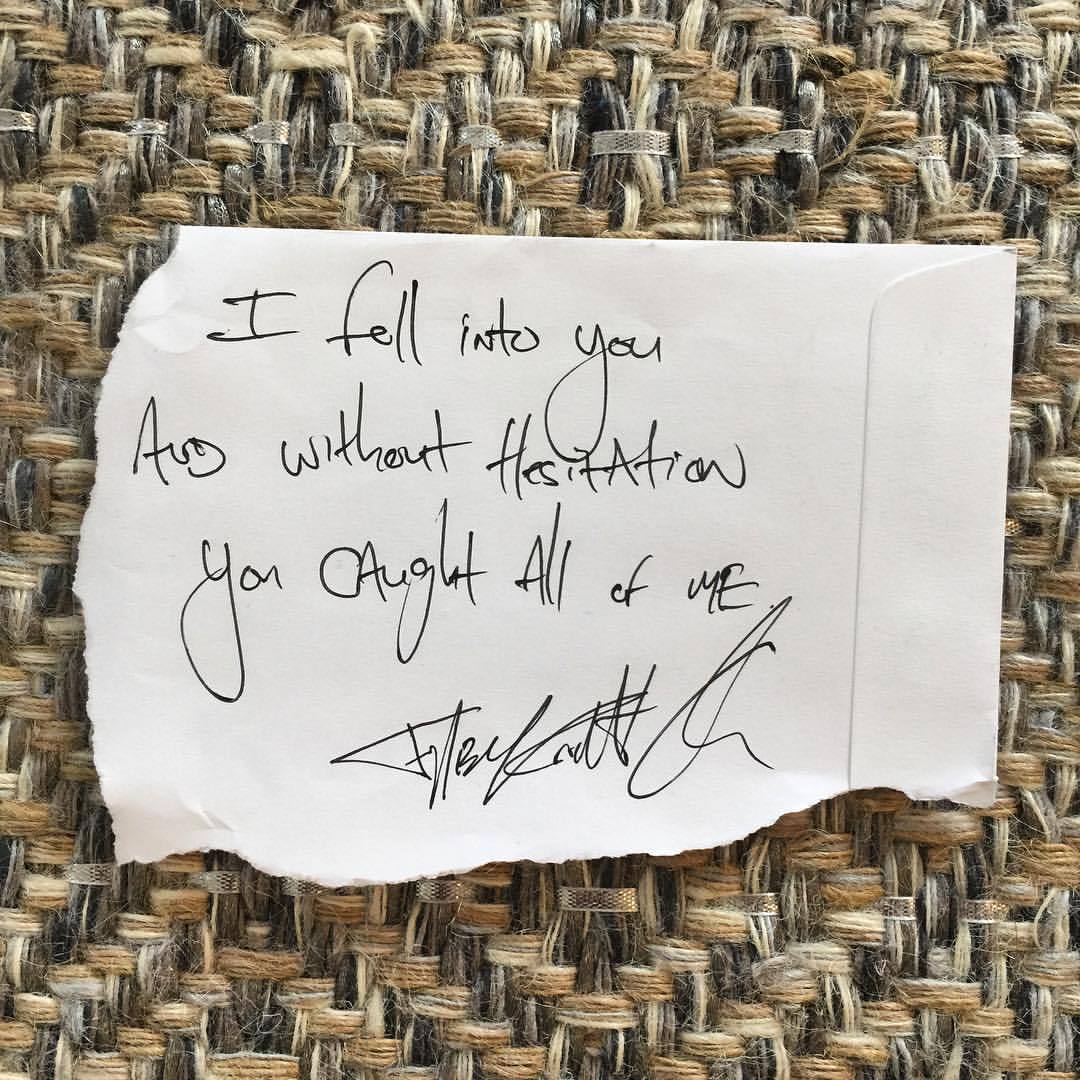 I fell into you
AND without HesitAtion
you CAught All of ME